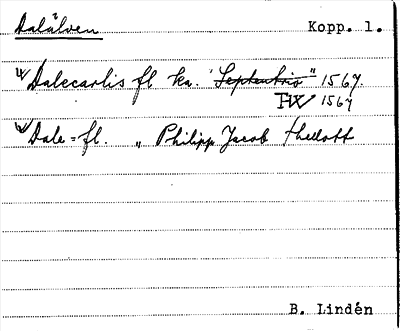 Dalälven Kopp. 1.
W Dalecarlis fl ka. "Septentrio" 1567.
FW 1567
W Dale = fl. " Philipp Jacob Thelott
B. Lindén